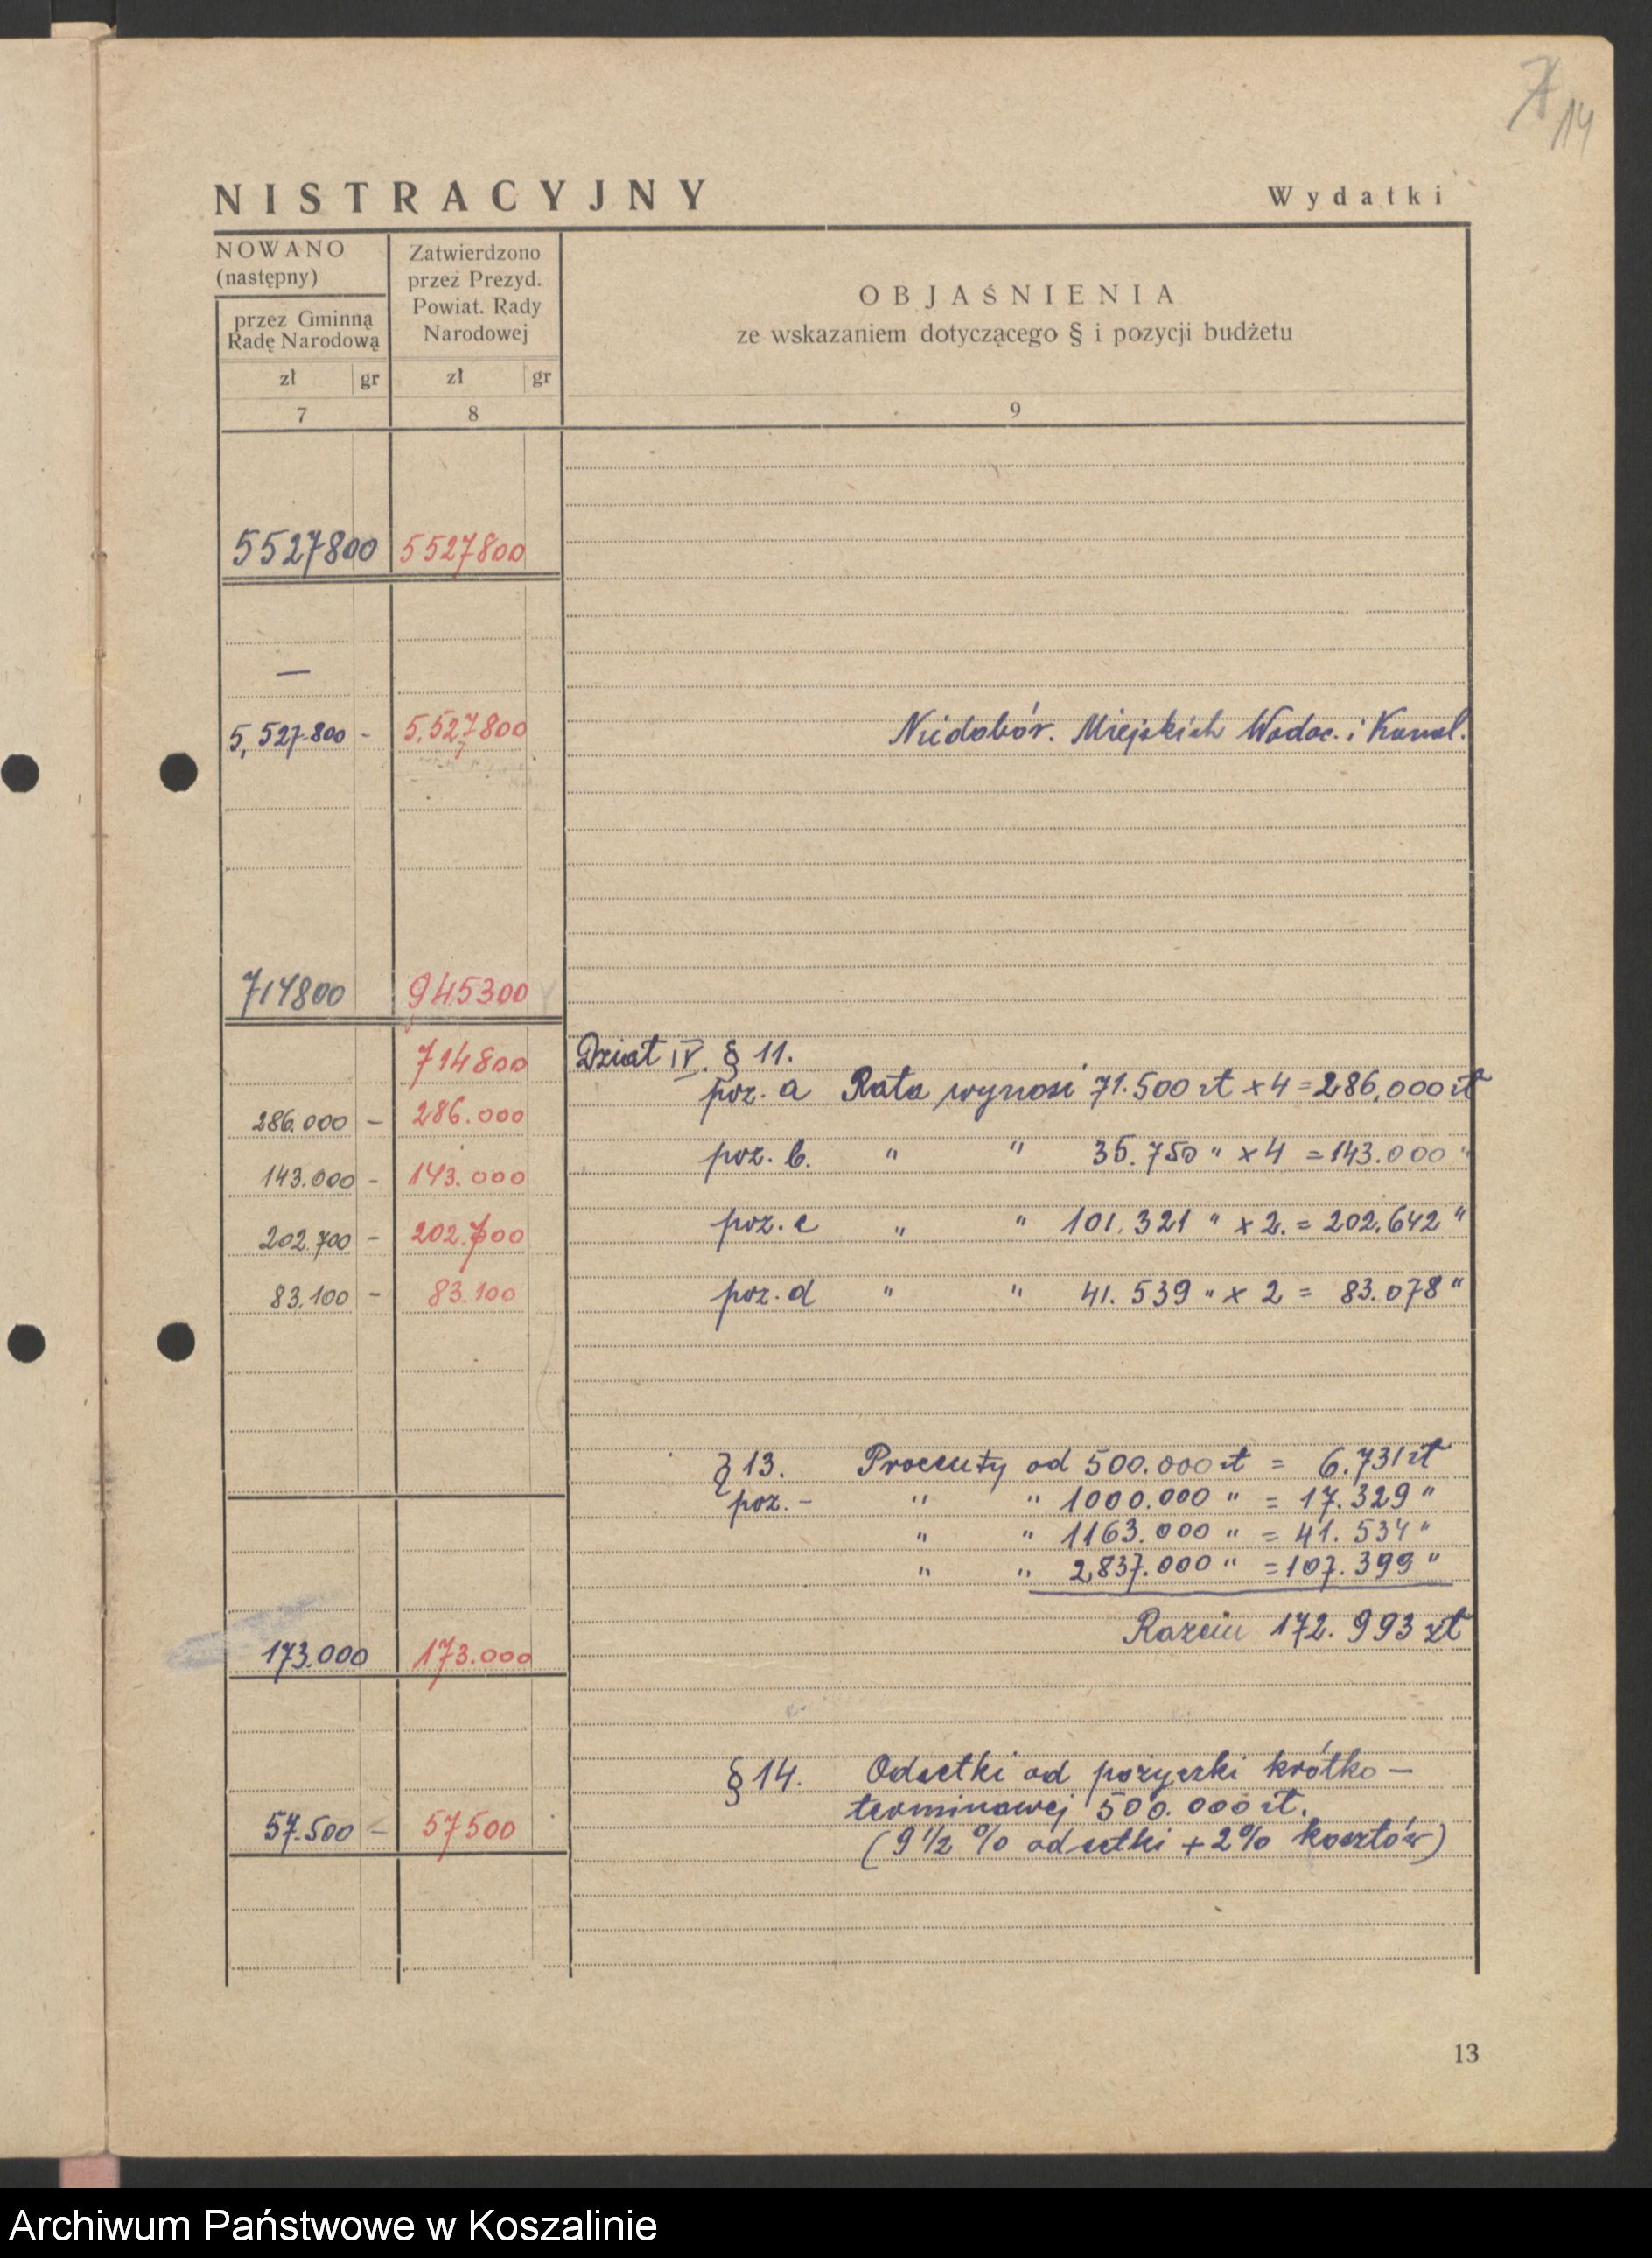 14
NISTRACYJNY Wydatki
NOWANO
(następny)
przez Gminną
Radę Narodową
Zatwierdzono
przez Prezyd.
Powiat. Rady
Narodowej
OBJAŚNIENIA
ze wskazaniem dotyczącego § i pozycji budżetu
zł gr zł gr
7 8 9
5527800 5527800
—
5,527.800 - 5.527800 Niedobór. Miejskich Wodoc. i Kanal.
714800 945300
714800 Dział IV. § 11.
286.000 - 286.000 poz. a Rata wynosi 71.500 zł x 4 = 286,000 zł
143.000 - 143.000 poz. b. " " 35.750 " x 4 = 143.000 "
202.700 - 202.700 poz. c " " 101.321 " x 2. = 202.642 "
83.100 - 83.100 poz. d " " 41.539 " x 2 = 83.078 "
§ 13. Procenty od 500.000 zł = 6.731 zł
poz. - " " 1000.000 " = 17.329 "
" " 1163.000 " = 41.534 "
" " 2,837.000 " = 107.399 "
Razem 172.993 zł
173.000 173.000
§ 14. Odsetki od pożyczki krótko-
terminowej 500.000 zł.
57.500 - 57500 (9 1/2 % odsetki + 2% kosztów)
13
Archiwum Państwowe w Koszalinie